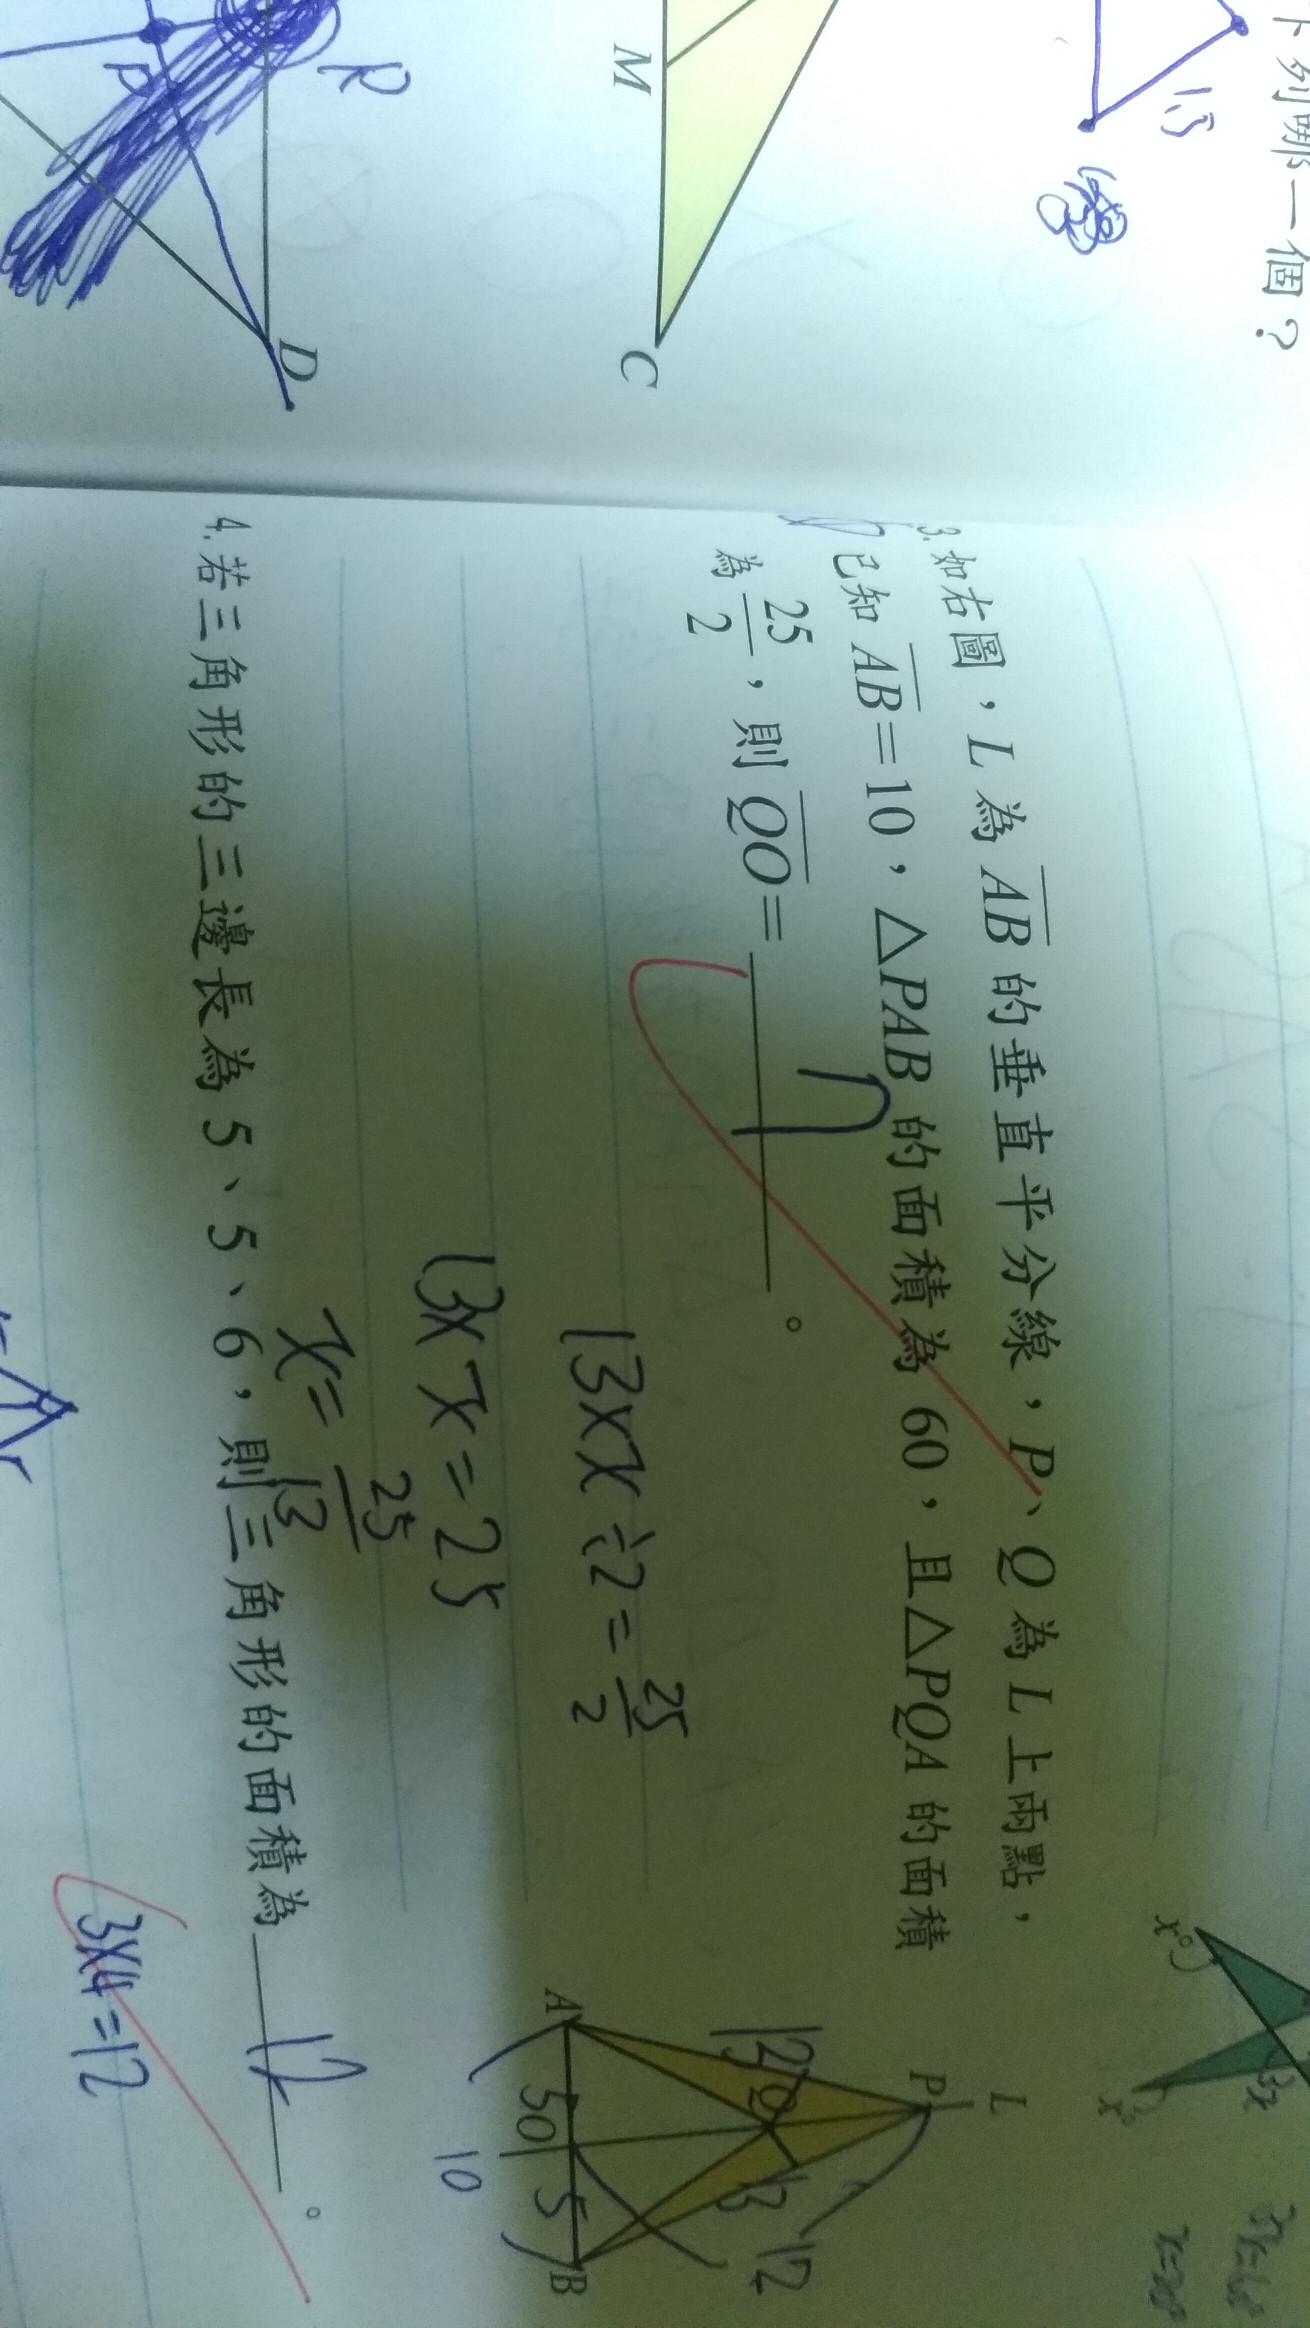 下列哪一個？
15
M
C
R
D
3. 如右圖，L 為 AB 的垂直平分線，P、Q 為 L 上兩點，
已知 AB＝10，△PAB 的面積為 60，且△PQA 的面積
為 25/2，則 QO＝ 7 。
13×x÷2＝25/2
13×x＝25
x＝25/13
L
P
Q
A
O
B
5
5
10
13
13
12
x°
x°
3x
4. 若三角形的三邊長為 5、5、6，則三角形的面積為 12 。
3×4＝12